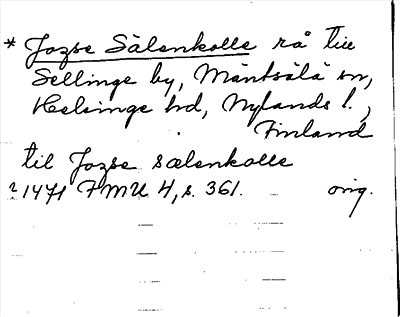 * Jozse Sälenkolle rå till
Sellinge by, Mäntsälä sn,
Helsinge hd, Nylands l.,
Finland
til Jozse sælenkolle
2 1471 FMU 4, s. 361. orig.